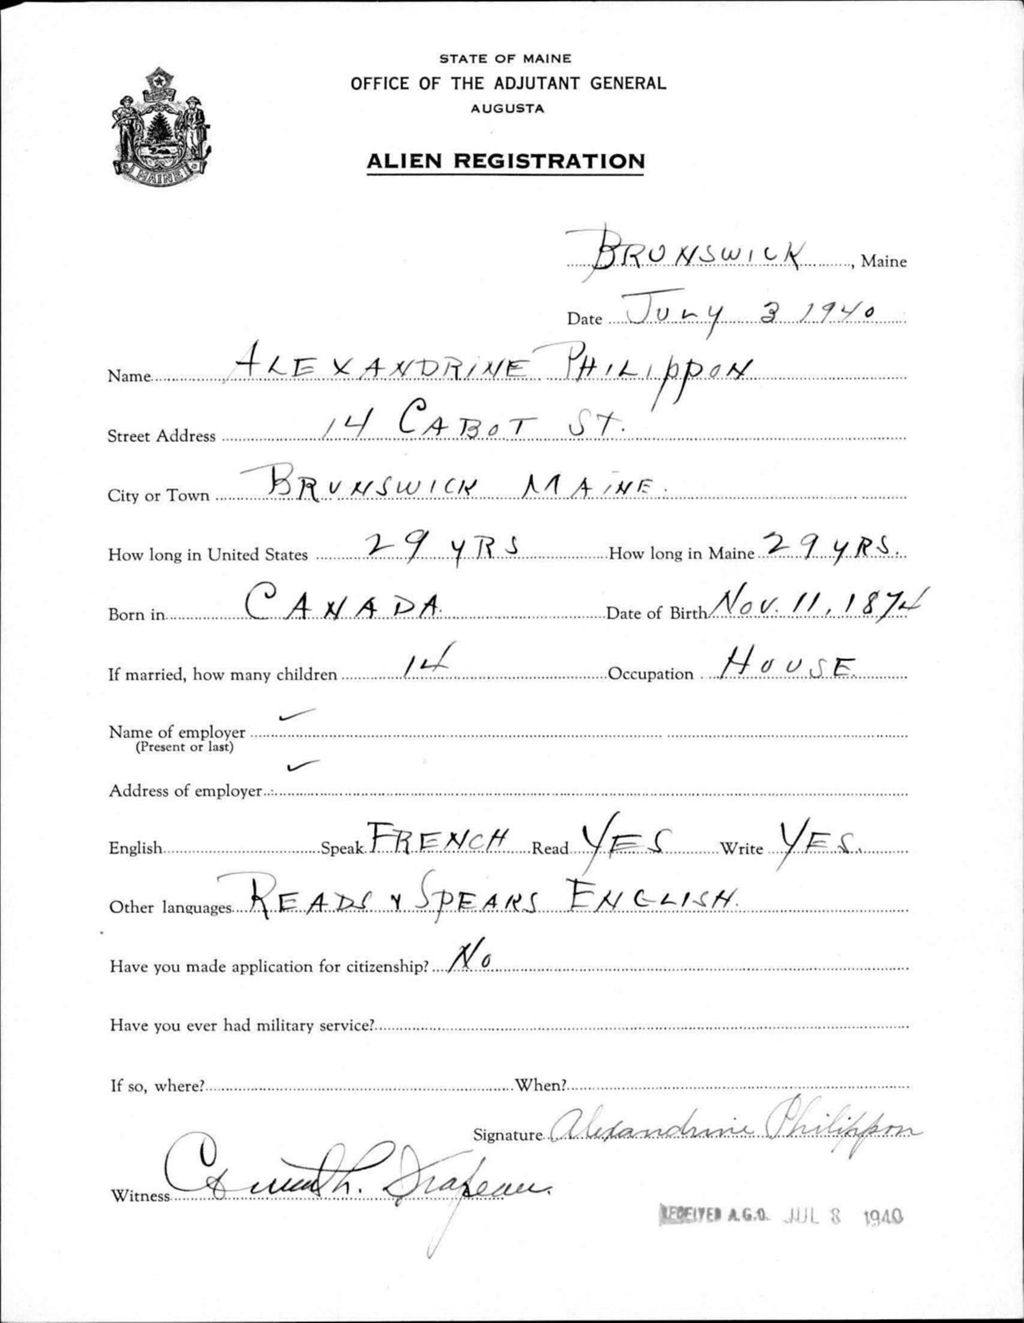 STATE OF MAINE
OFFICE OF THE ADJUTANT GENERAL
AUGUSTA
ALIEN REGISTRATION
MAINE
BRUNSWICK, Maine
Date JULY 3 1940
Name ALEXANDRINE PHILIPPON
Street Address 14 CABOT ST.
City or Town BRUNSWICK MAINE.
How long in United States 29 YRS How long in Maine 29 YRS.
Born in CANADA. Date of Birth NOV. 11, 1874
If married, how many children 14 Occupation HOUSE.
Name of employer
(Present or last)
Address of employer
English Speak FRENCH Read YES Write YES.
Other languages READS & SPEAKS ENGLISH.
Have you made application for citizenship? NO
Have you ever had military service?
If so, where? When?
Signature Alexandrine Philippon
Witness L. Drapeau.
RECEIVED A.G.O. JUL 8 1940